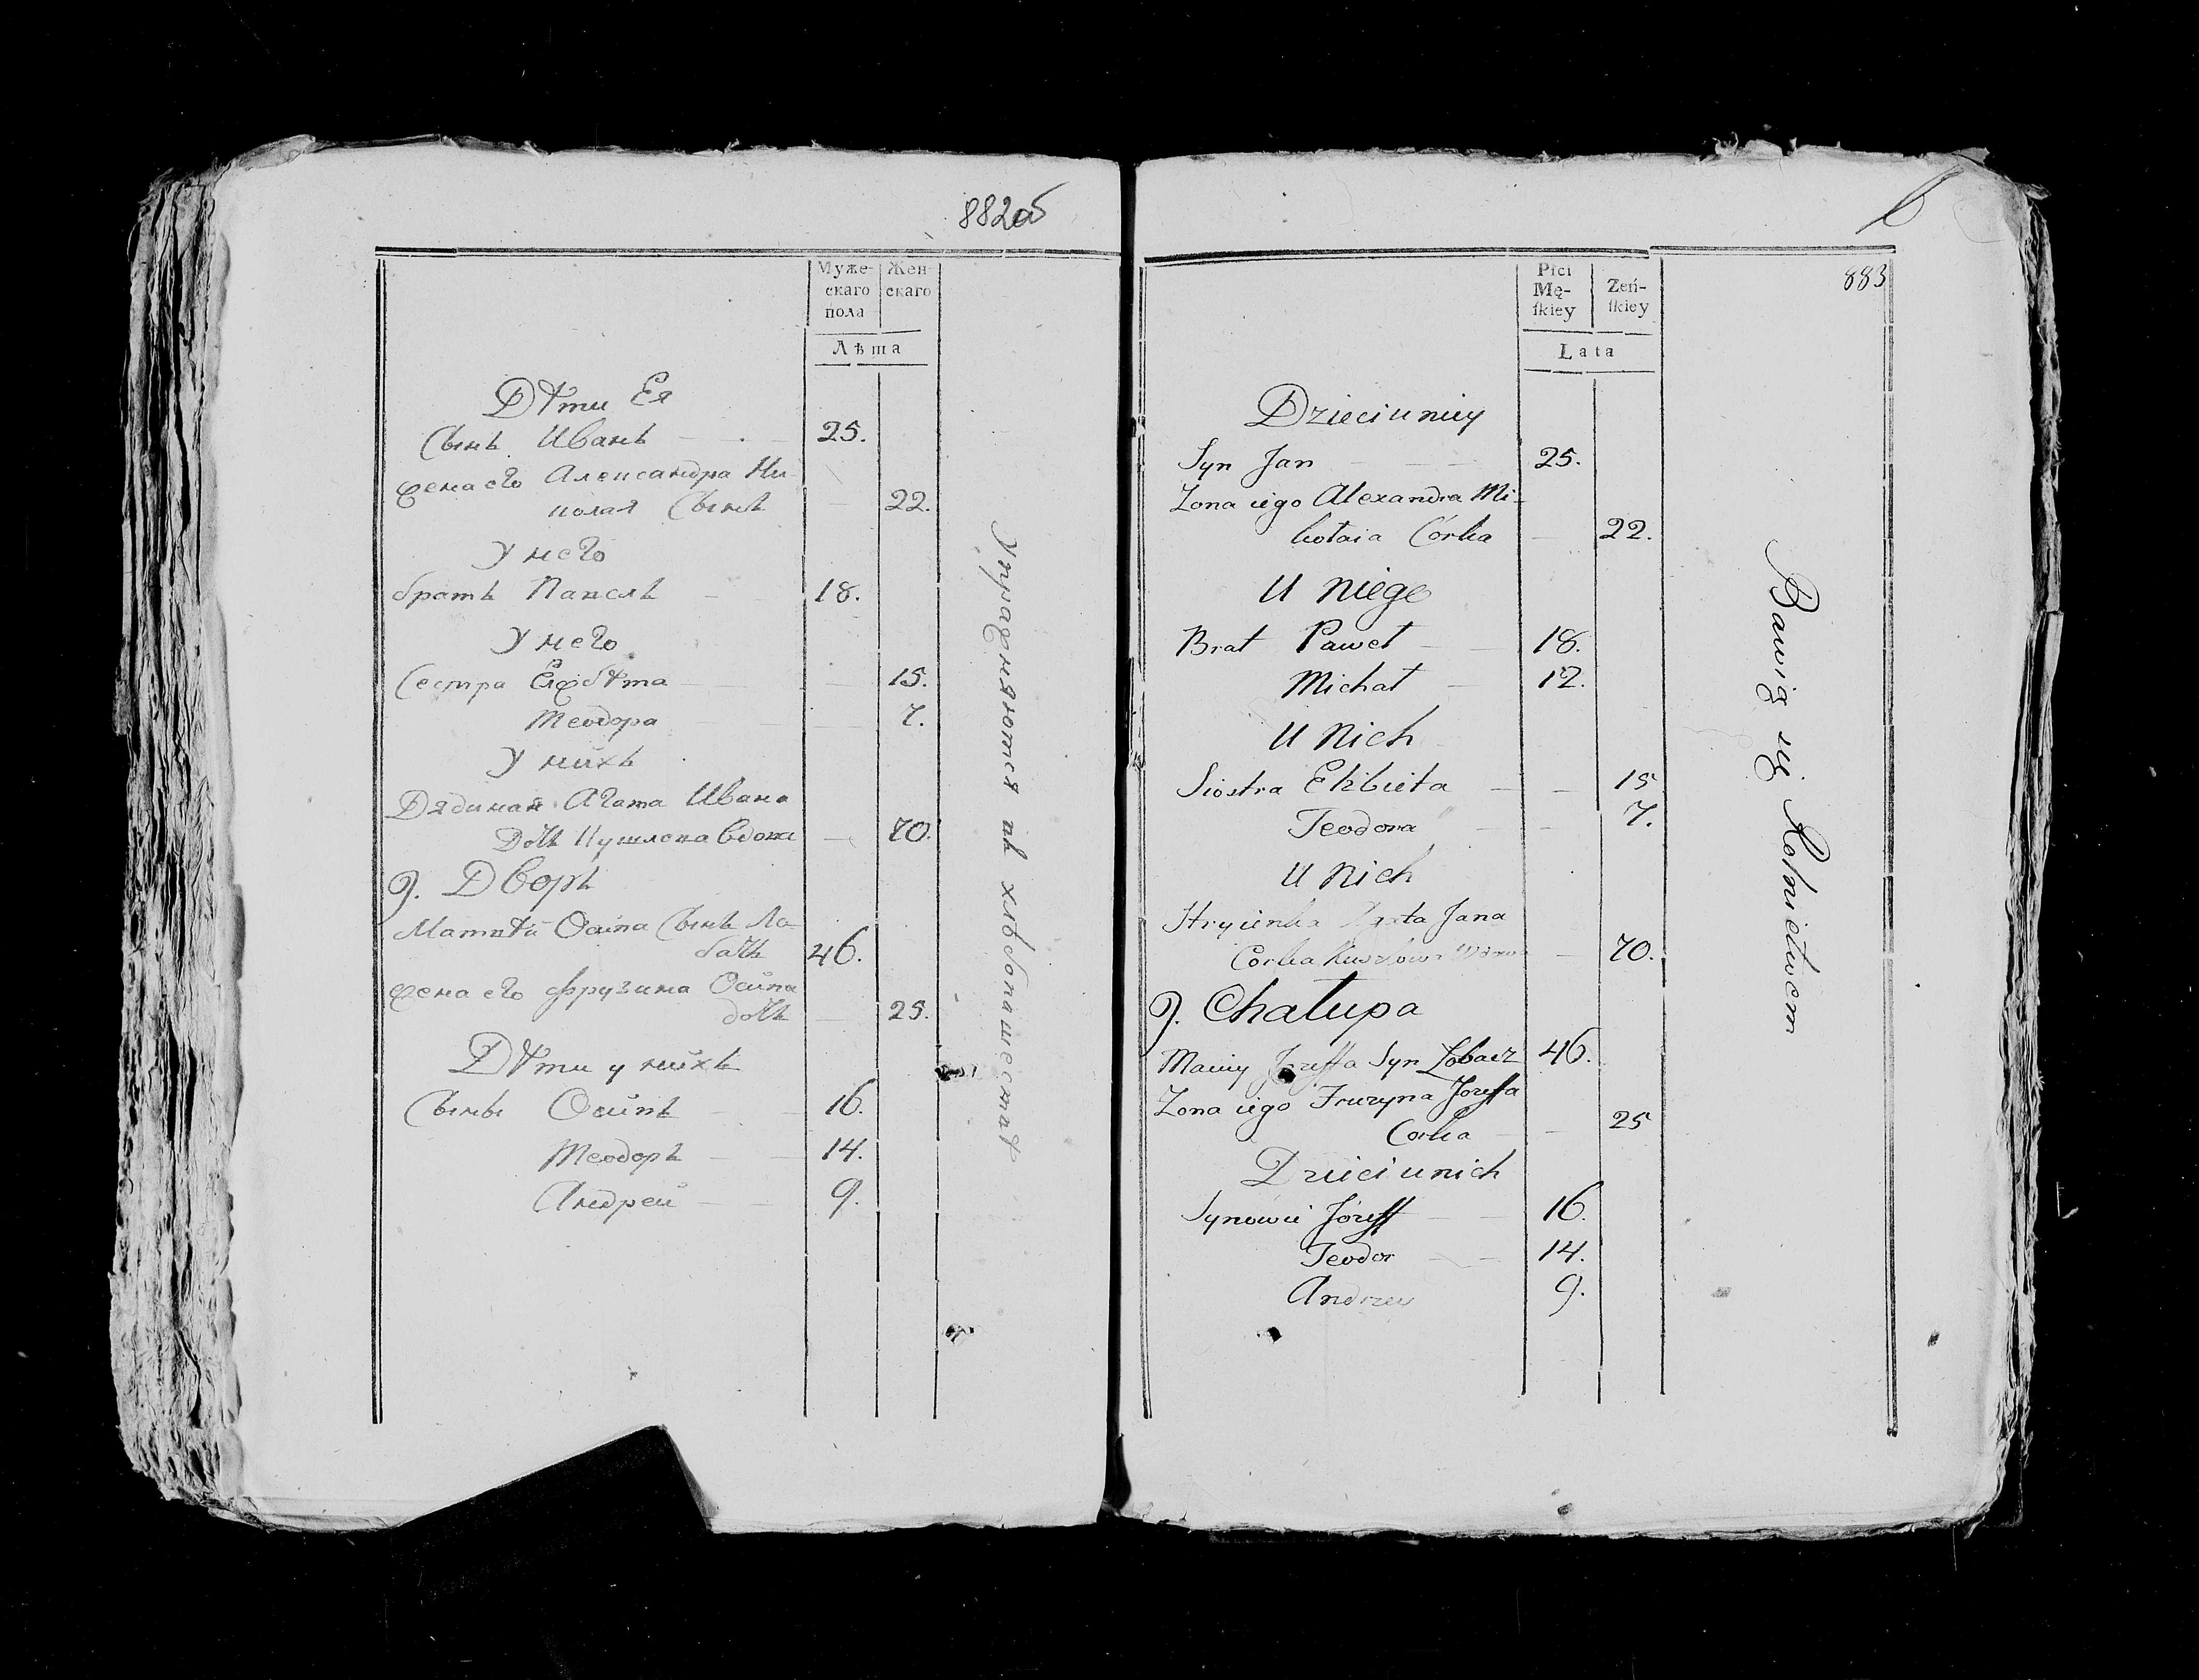 882об
Муже-
скаго
пола
Жен-
скаго
Лѣта
Дѣти Ея
Сынъ Иванъ 25.
жена его Александра Ми-
колая Сынъ 22.
У него
братъ Павелъ 18.
У него
Сестра Елжбѣта 15.
Теодора 7.
У нихъ
Дядиная Агата Ивана
Дочь Кушлова вдова 70.
9. Дворъ
Матвѣй Осипа Сынъ Ло-
бачь 46.
жена его Фрузина Осипа
дочь 25.
Дѣти у нихъ
Сыны Осипъ 16.
Теодоръ 14.
Андрей 9.
Упражняются въ хлѣбопашествѣ
883
Płci
Mę-
skiey
Zeń-
skiey
Lata
Dzieci u niey
Syn Jan 25.
Zona iego Alexandra Mi-
kołaia Córka 22.
U niego
Brat Paweł 18.
Michał 12.
U Nich
Siostra Elżbieta 15
Teodora 7.
U Nich
Stryienka Agata Jana
Corka Kuszlowa Wdowa 70.
9. Chałupa
Maciey Jozeffa Syn Łobacz 46.
Zona iego Fruzyna Jozeffa
Corka 25
Dzieci u nich
Synowie Józeff 16.
Teodor 14.
Andrzey 9.
Bawią się Rolnictwem